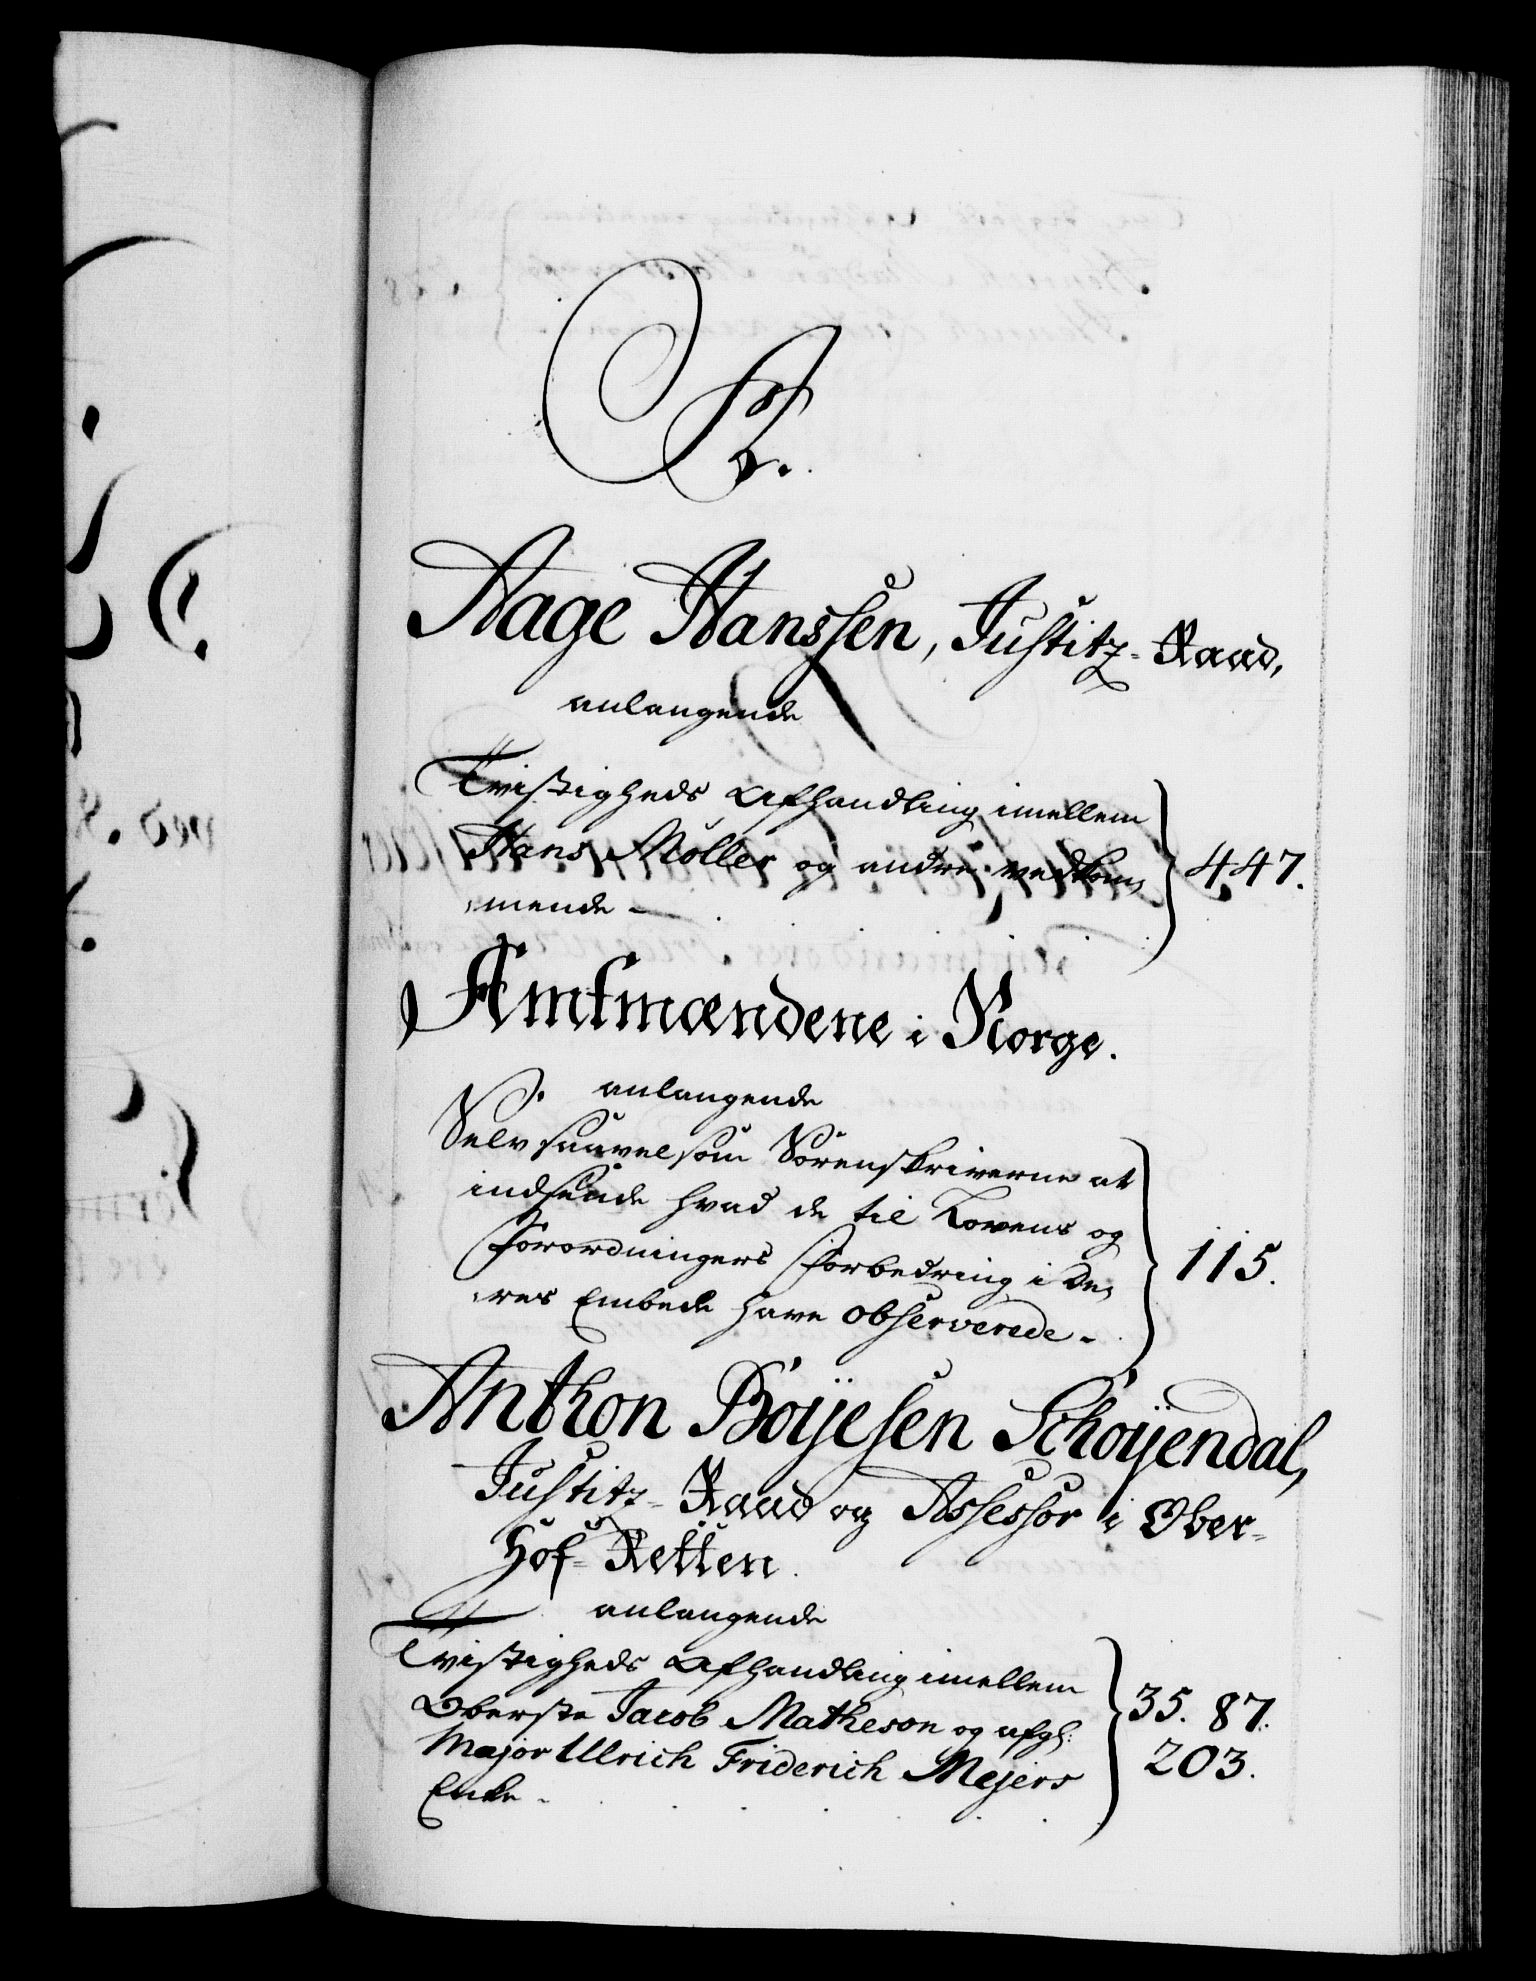 A.
Aage Hanssen, Justitz-Raad,
anlangende
Tvistigheds Afhandling imellem
Hans Møller og andre vedkom,
,mende - 447.
Amtmændene i Norge.
anlangende
Selv saavelsom Sorenskriverne at
indsende hvad de til Lovens og
Forordningers Forbedring i De,
,res Embede have observerede. 115.
Anthon Böÿesen Schöÿendal,
Justitz-Raad og Assessor i Ober-
Hof-Retten.
anlangende
Tvistigheds Afhandling imellem
Oberste Jacob Matheson og afg:
Major Ulrich Friderich Mejers
Enke - 35. 87.
203.